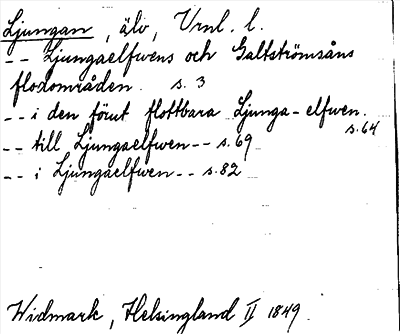 Ljungan, älv, Vrnl. l.
-- Ljungaelfwens och Galtströmsåns
flodområden. s. 3
-- i den förut flottbara Ljunga-elfwen.
s. 64
-- till Ljungaelfwen -- s. 69
-- i Ljungaelfwen -- s. 82
Widmark, Helsingland II 1849.